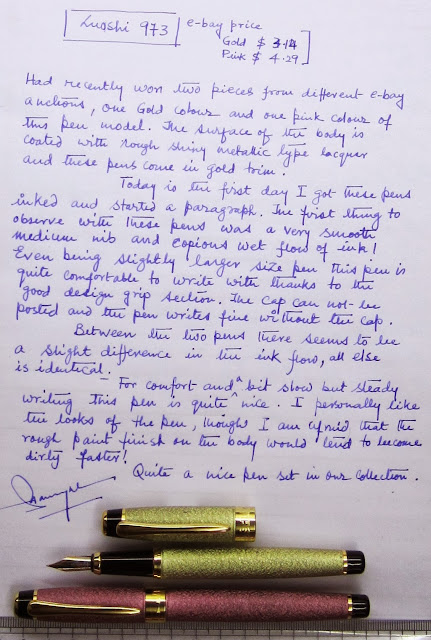 Luoshi 973
e-bay price
Gold $ 3.14
Pink $ 4.29
Had recently won two pieces from different e-bay
auctions, one Gold colour and one pink colour of
this pen model. The surface of the body is
coated with rough shiny metallic type lacquer
and these pens come in gold trim.
Today is the first day I got these pens
inked and started a paragraph. The first thing to
observe with these pens was a very smooth
medium nib and copious wet flow of ink!
Even being slightly larger size pen this pen is
quite comfortable to write with thanks to the
good design grip section. The cap can not be
posted and the pen writes fine without the cap.
Between the two pens there seems to be
a slight difference in the ink flow, all else
is identical.
For comfort and ^a bit slow but steady
writing this pen is quite nice. I personally like
the looks of the pen, though I am afraid that the
rough paint finish on the body would tend to become
dirty faster!
Quite a nice pen set in our collection.